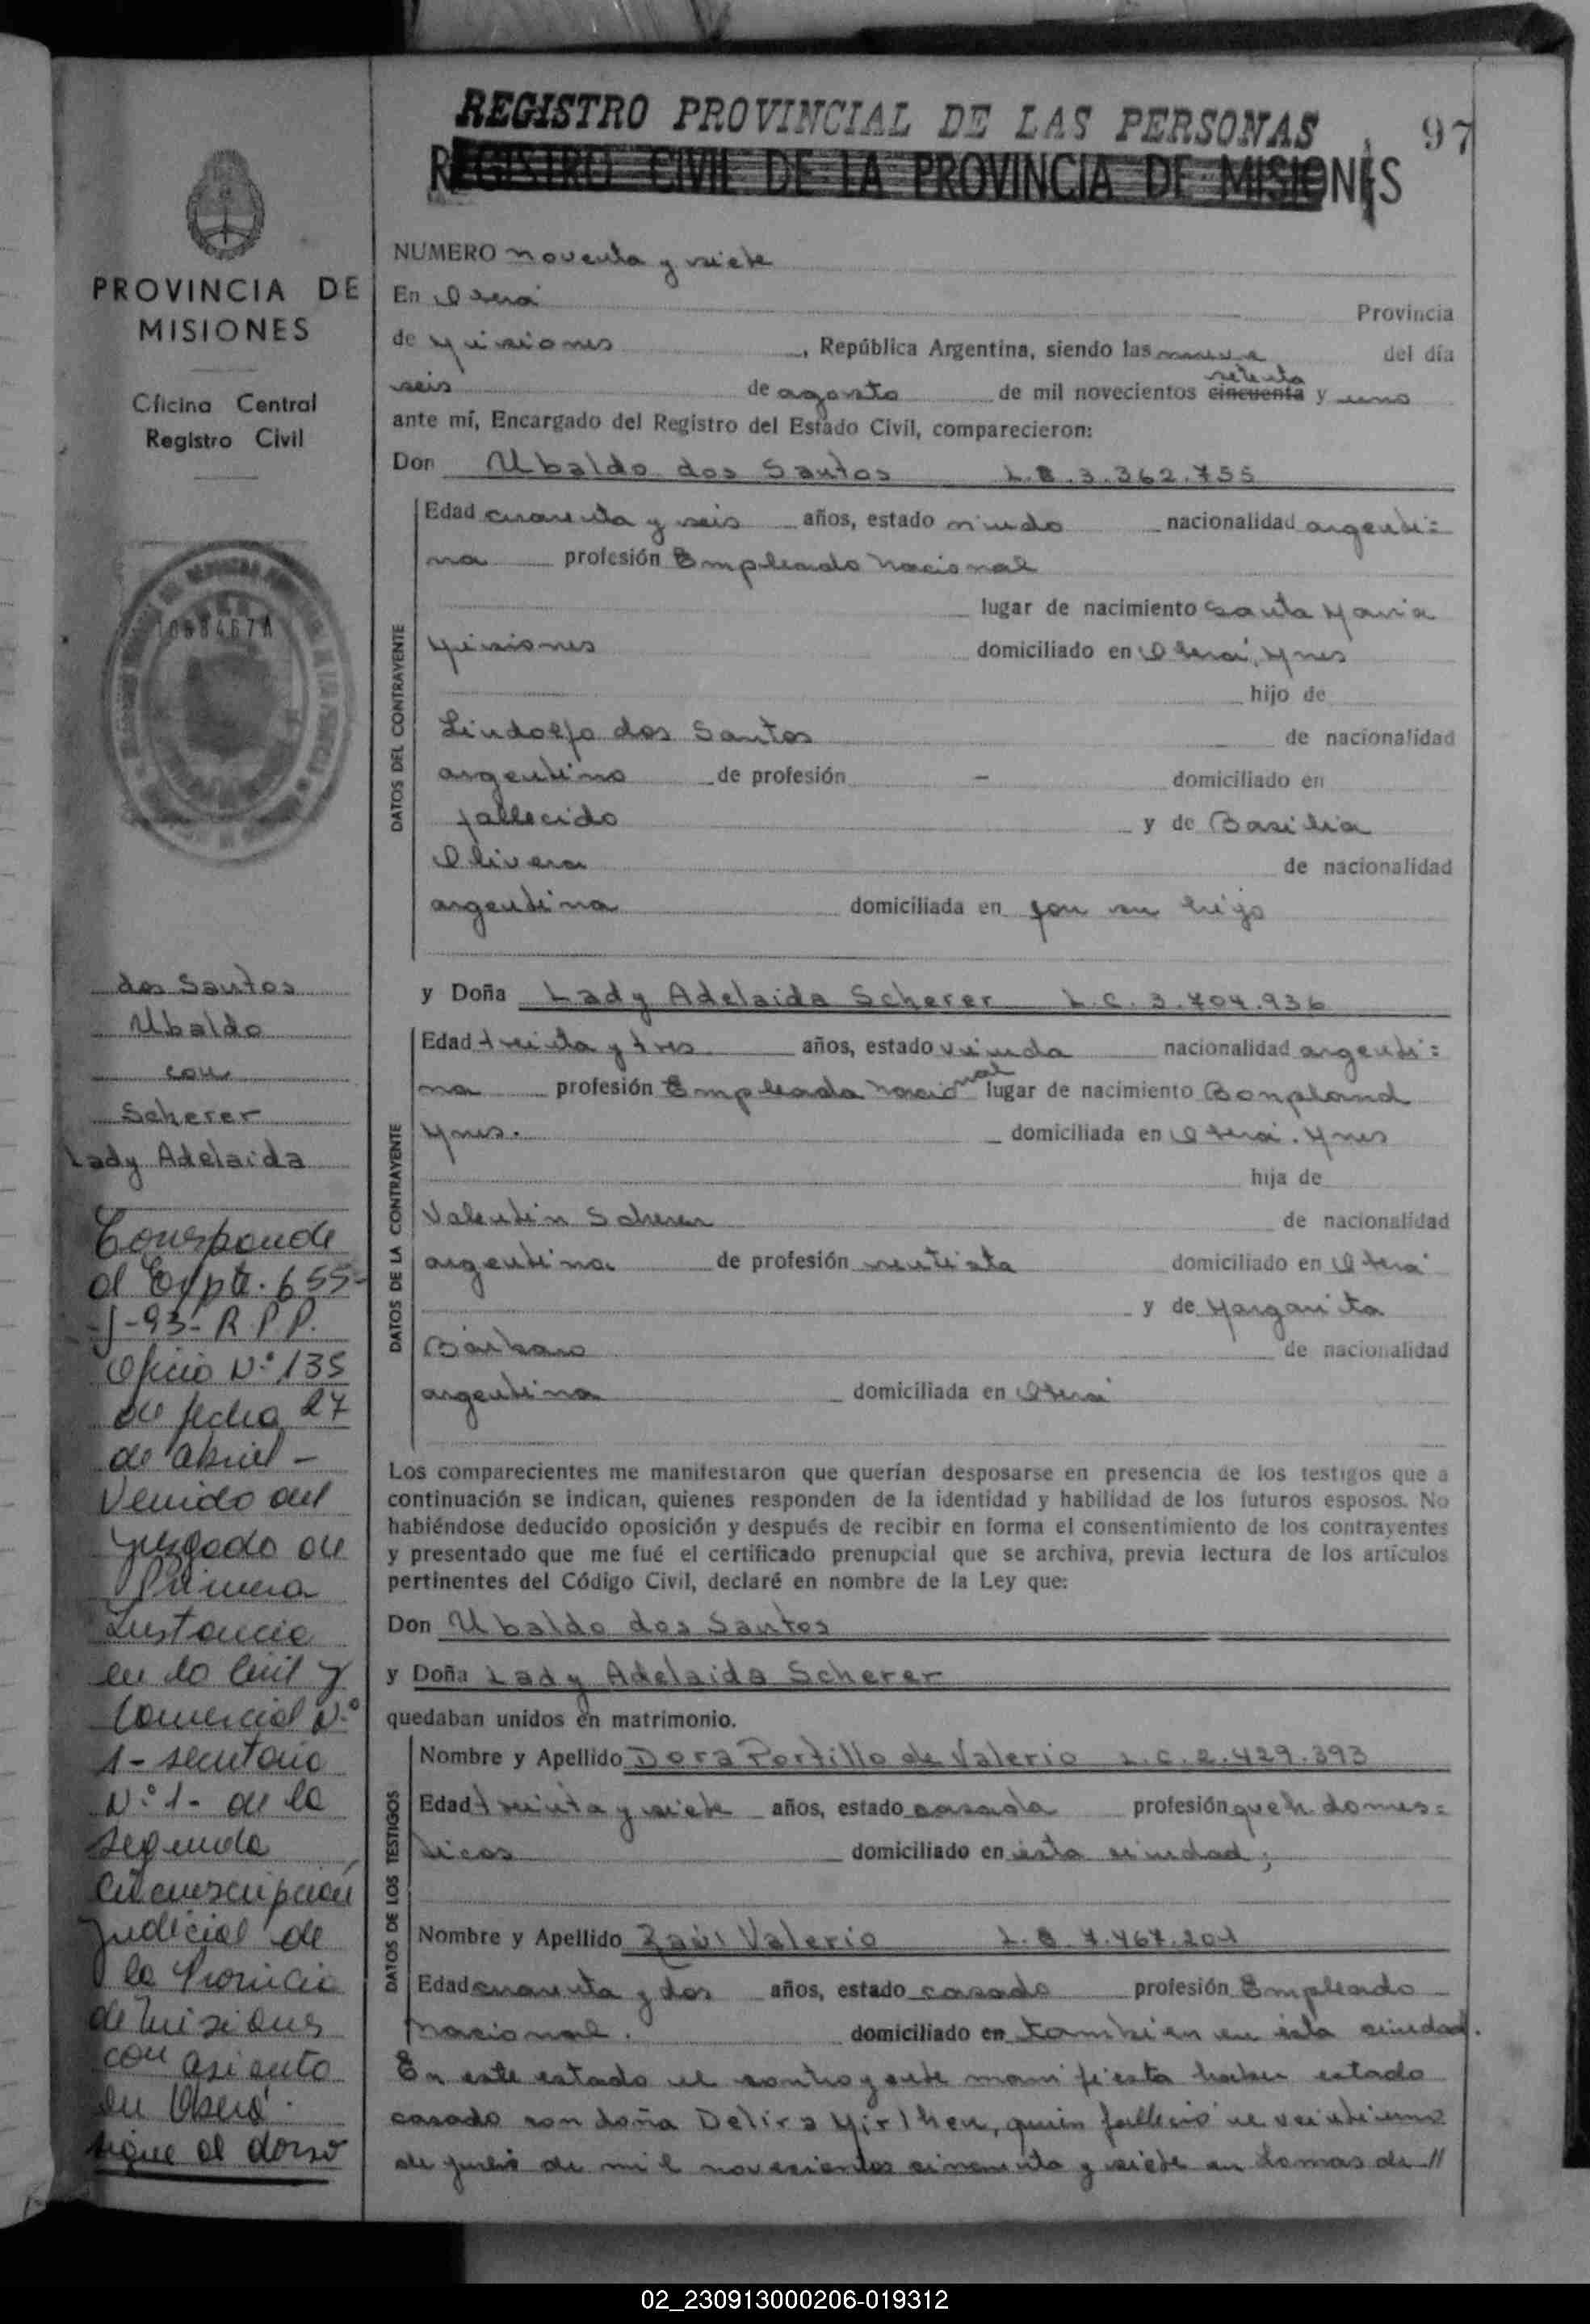 REGISTRO PROVINCIAL DE LAS PERSONAS
97
REGISTRO CIVIL DE LA PROVINCIA DE MISIONES
PROVINCIA DE
MISIONES
Oficina Central
Registro Civil
1098467A
dos Santos
Ubaldo
con
Scherer
Lady Adelaida
Corresponde
al Expte. 655-
-J-93- R.P.P.
Oficio Nº 135
de fecha 27
de abril -
Venido del
juzgado de
Primera
Instancia
en lo Civil y
Comercial Nº
1- secretaria
Nº 1- de la
segunda
Circunscripción
Judicial de
la Provincia
de Misiones
con asiento
en Oberá.
sigue al dorso
NUMERO noventa y siete
En Oberá Provincia
de Misiones, República Argentina, siendo las nueve del día
seis de agosto de mil novecientos cincuenta setenta y uno
ante mí, Encargado del Registro del Estado Civil, comparecieron:
Don Ubaldo dos Santos L.E. 3.362.755
DATOS DEL CONTRAYENTE
Edad cuarenta y seis años, estado viudo nacionalidad argenti=
na profesión Empleado nacional
lugar de nacimiento Santa María
Misiones domiciliado en Oberá, Mnes
hijo de
Lindolfo dos Santos de nacionalidad
argentino de profesión - domiciliado en
fallecido y de Basilia
Olivera de nacionalidad
argentina domiciliada en con su hijo
y Doña Lady Adelaida Scherer L.C. 3.704.936
DATOS DE LA CONTRAYENTE
Edad treinta y tres años, estado viuda nacionalidad argenti=
na profesión Empleada nacional lugar de nacimiento Bonpland
Mnes. domiciliada en Oberá. Mnes
hija de
Valentin Scherer de nacionalidad
argentina de profesión rentista domiciliado en Oberá
y de Margarita
Bárbaro de nacionalidad
argentina domiciliada en Oberá
Los comparecientes me manifestaron que querían desposarse en presencia de los testigos que a
continuación se indican, quienes responden de la identidad y habilidad de los futuros esposos. No
habiéndose deducido oposición y después de recibir en forma el consentimiento de los contrayentes
y presentado que me fué el certificado prenupcial que se archiva, previa lectura de los artículos
pertinentes del Código Civil, declaré en nombre de la Ley que:
Don Ubaldo dos Santos
y Doña Lady Adelaida Scherer
quedaban unidos en matrimonio.
DATOS DE LOS TESTIGOS
Nombre y Apellido Dora Portillo de Valerio L.C. 2.429.393
Edad treinta y siete años, estado casada profesión queh. domes=
ticos domiciliado en ésta ciudad;
Nombre y Apellido Raúl Valerio L.E. 7.467.201
Edad cuarenta y dos años, estado casado profesión Empleado
nacional. domiciliado en también en ésta ciudad.
En este estado el contrayente manifiesta haber estado
casado con doña Delira quien falleció el veintiuno
de de mil novecientos cincuenta y siete en Lomas de //
02_230913000206-019312